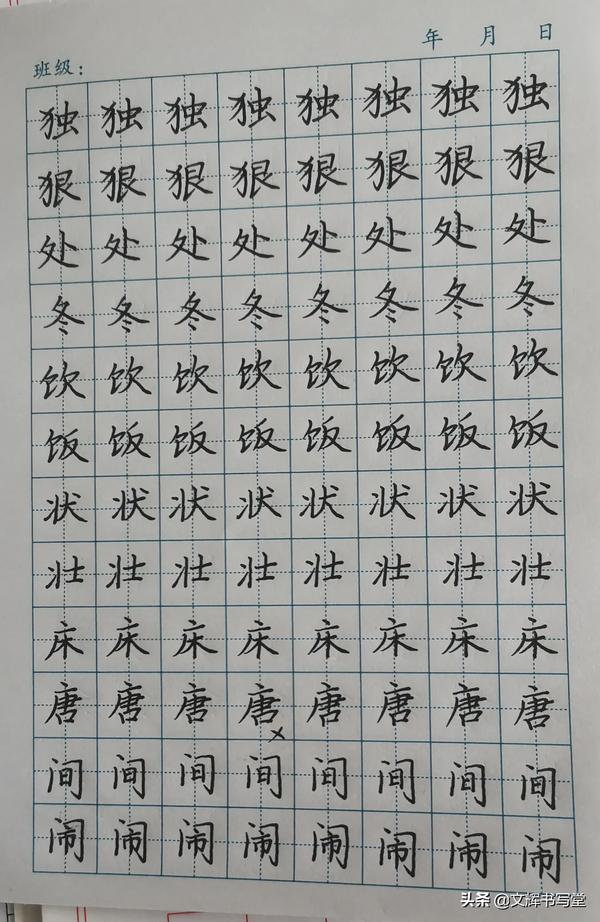 年 月 日
班级：
独独独独独独独独
狠狠狠狠狠狠狠狠
处处处处处处处处
冬冬冬冬冬冬冬冬
饮饮饮饮饮饮饮饮
饭饭饭饭饭饭饭饭
状状状状状状状状
壮壮壮壮壮壮壮壮
床床床床床床床床
唐唐唐唐唐唐唐唐
间间间间间间间间
闹闹闹闹闹闹闹闹
头条 @文辉书写堂